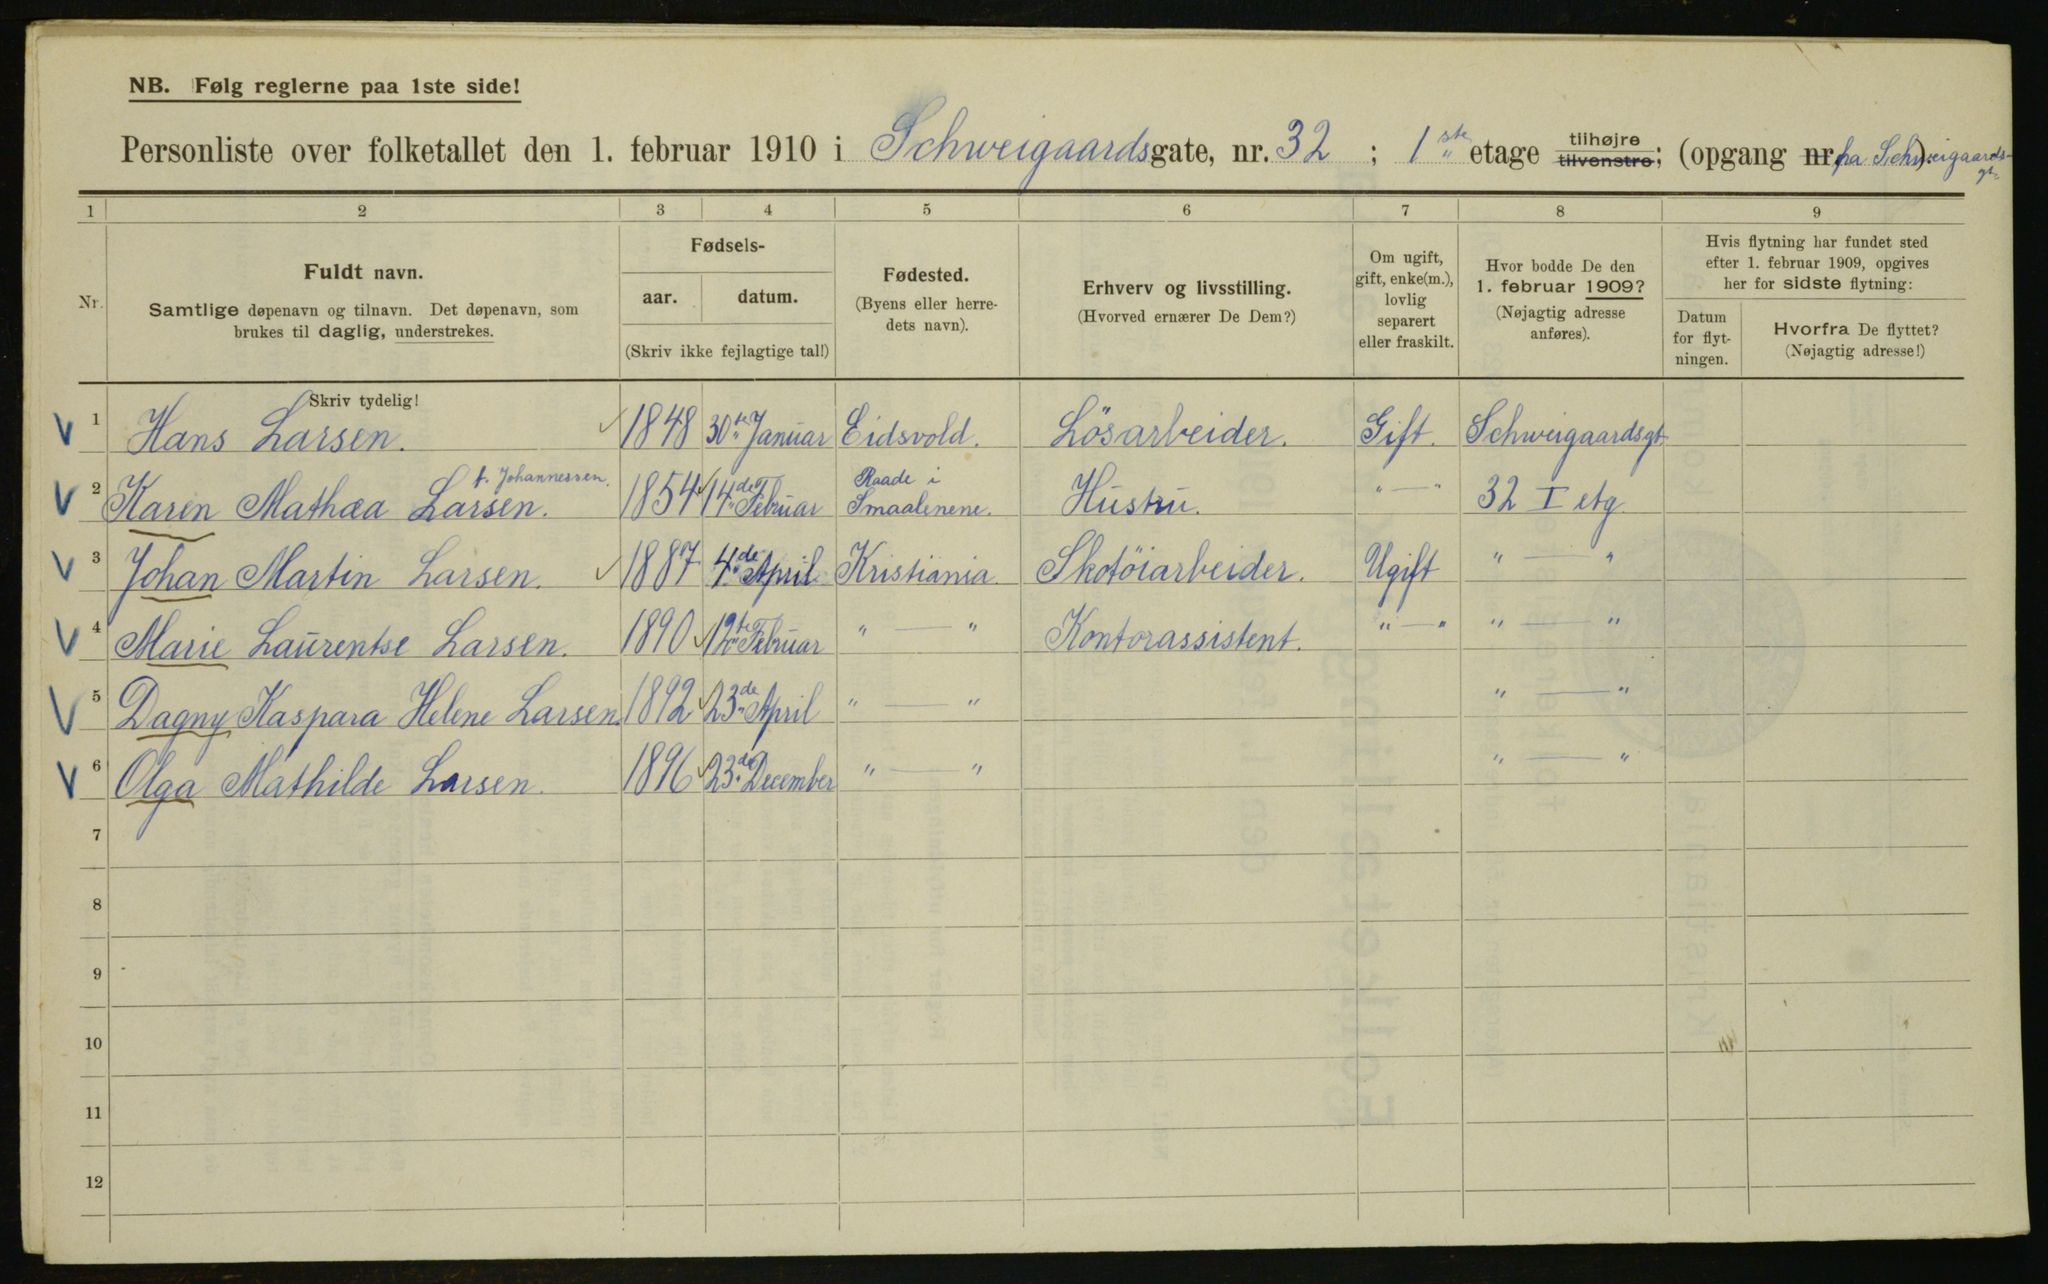 NB. Følg reglerne paa 1ste side!
Personliste over folketallet den 1. februar 1910 i Schweigaardsgate, nr. 32 ; 1ste etage tilhøjre tilvenstre; (opgang nr. fra Schweigaardsgt.)
1 2 3 4 5 6 7 8 9
Nr.
Fuldt navn.
Samtlige døpenavn og tilnavn. Det døpenavn, som
brukes til daglig, understrekes.
Fødsels-
aar. datum.
(Skriv ikke fejlagtige tal!)
Fødested.
(Byens eller herre-
dets navn).
Erhverv og livsstilling.
(Hvorved ernærer De Dem?)
Om ugift,
gift, enke(m.),
lovlig
separert
eller fraskilt.
Hvor bodde De den
1. februar 1909?
(Nøjagtig adresse
anføres).
Hvis flytning har fundet sted
efter 1. februar 1909, opgives
her for sidste flytning:
Datum
for flyt-
ningen.
Hvorfra De flyttet?
(Nøjagtig adresse!)
Skriv tydelig!
1 Hans Larsen. 1848 30te Januar Eidsvold. Lösarbeider. Gift. Schweigaardsgt
2 Karen Mathæa Larsen. f. Johannessen. 1854 14de Februar Raade i Smaalenene. Hustru. " — " 32 I etg
3 Johan Martin Larsen. 1887 4de April Kristiania. Skotöiarbeider. Ugift " — "
4 Marie Laurentse Larsen. 1890 12te Februar " — " Kontorassistent. " — " " — "
5 Dagny Kaspara Helene Larsen. 1892 23de April " — " " — "
6 Olga Mathilde Larsen. 1896 23de December " — " " — "
7
8
9
10
11
12